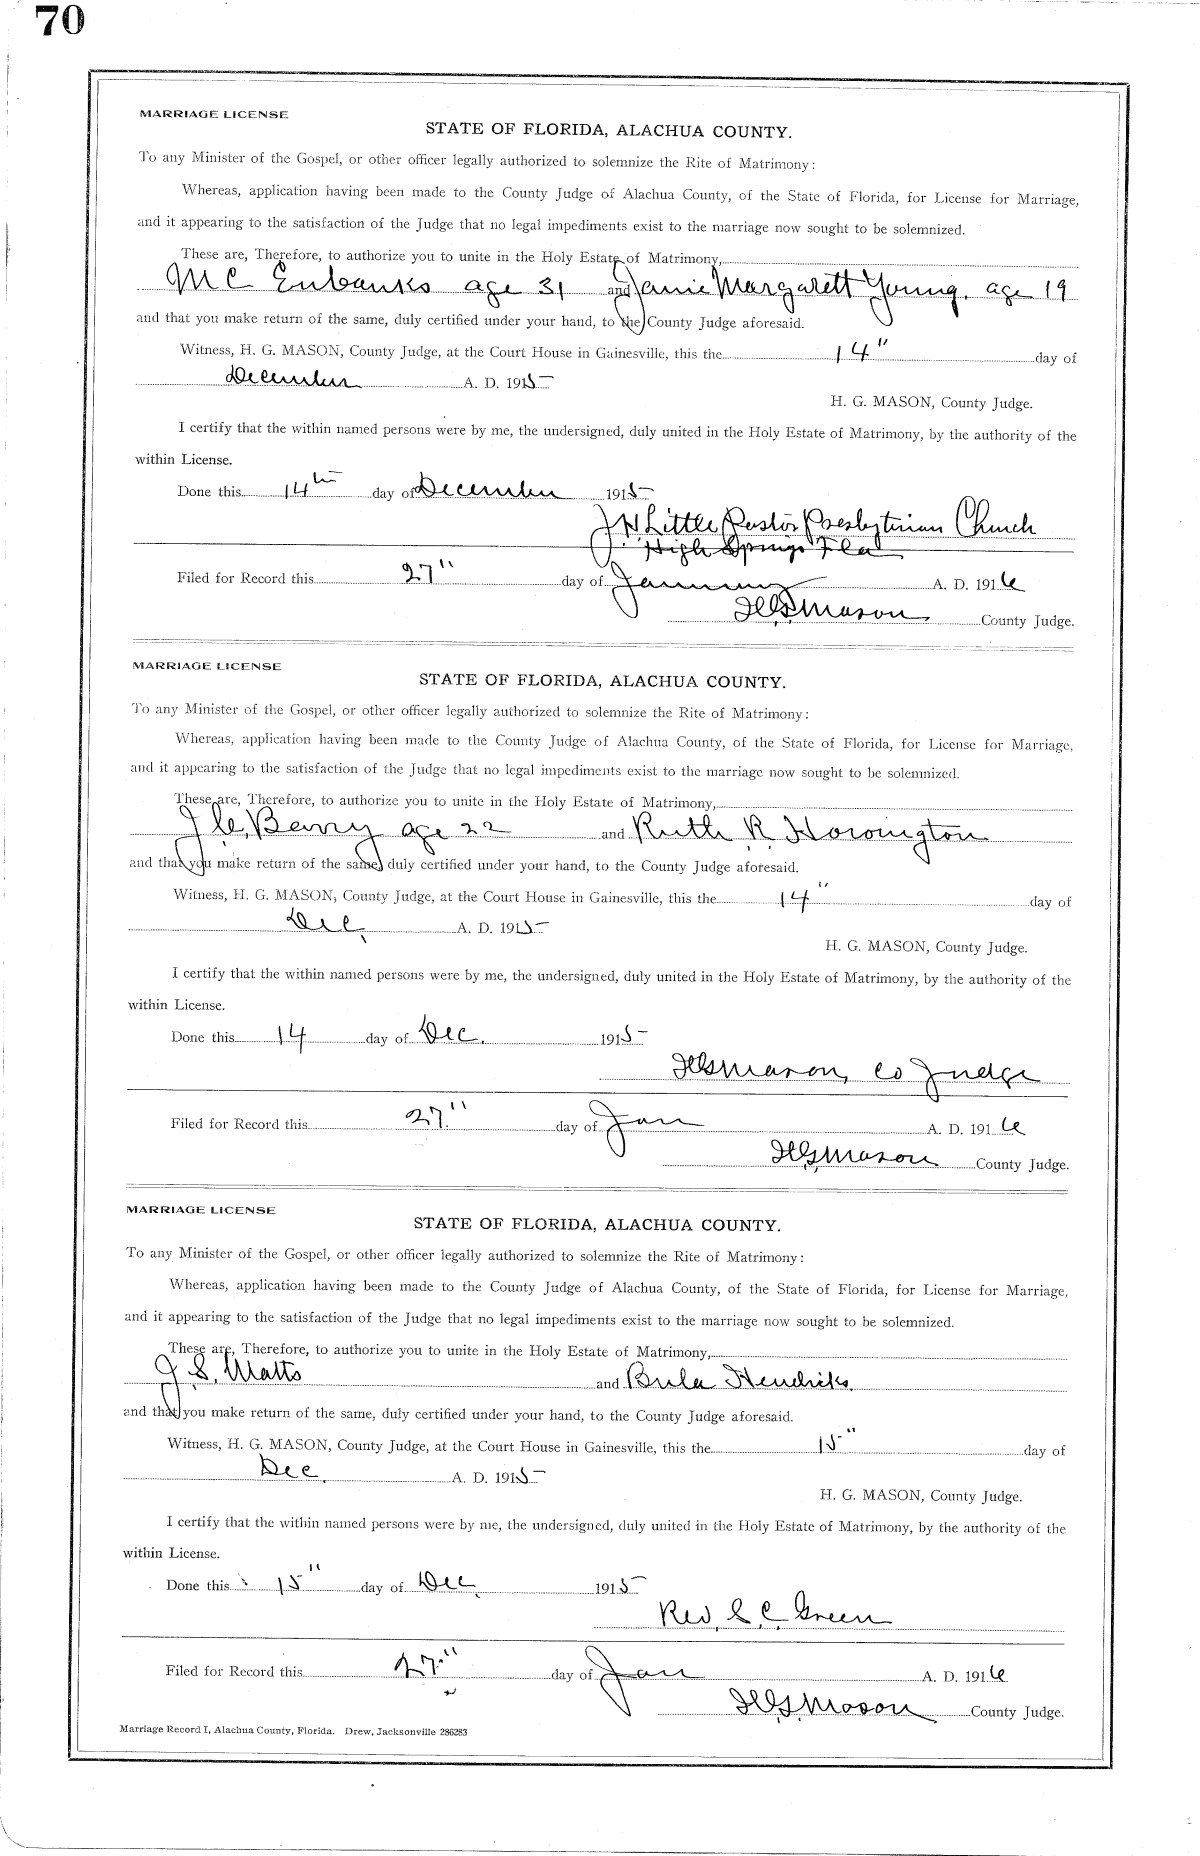 70
MARRIAGE LICENSE
STATE OF FLORIDA, ALACHUA COUNTY.
To any Minister of the Gospel, or other officer legally authorized to solemnize the Rite of Matrimony:
Whereas, application having been made to the County Judge of Alachua County, of the State of Florida, for License for Marriage,
and it appearing to the satisfaction of the Judge that no legal impediments exist to the marriage now sought to be solemnized.
These are, Therefore, to authorize you to unite in the Holy Estate of Matrimony,
M C Eubanks age 31 and Janie Margarett Young, age 19
and that you make return of the same, duly certified under your hand, to the County Judge aforesaid.
Witness, H. G. MASON, County Judge, at the Court House in Gainesville, this the 14" day of
December A. D. 1915
H. G. MASON, County Judge.
I certify that the within named persons were by me, the undersigned, duly united in the Holy Estate of Matrimony, by the authority of the
within License.
Done this 14th day of December 1915
J. H. Little Pastor Presbyterian Church
High Springs Fla
Filed for Record this 27" day of January A. D. 1916
H.G. Mason County Judge.
MARRIAGE LICENSE
STATE OF FLORIDA, ALACHUA COUNTY.
To any Minister of the Gospel, or other officer legally authorized to solemnize the Rite of Matrimony:
Whereas, application having been made to the County Judge of Alachua County, of the State of Florida, for License for Marriage,
and it appearing to the satisfaction of the Judge that no legal impediments exist to the marriage now sought to be solemnized.
These are, Therefore, to authorize you to unite in the Holy Estate of Matrimony,
J. C. Berry age 22 and Ruth R. Horington
and that you make return of the same, duly certified under your hand, to the County Judge aforesaid.
Witness, H. G. MASON, County Judge, at the Court House in Gainesville, this the 14" day of
Dec, A. D. 1915
H. G. MASON, County Judge.
I certify that the within named persons were by me, the undersigned, duly united in the Holy Estate of Matrimony, by the authority of the
within License.
Done this 14 day of Dec. 1915
H G Mason, Co Judge
Filed for Record this 27" day of Jan A. D. 1916
H.G. Mason County Judge.
MARRIAGE LICENSE
STATE OF FLORIDA, ALACHUA COUNTY.
To any Minister of the Gospel, or other officer legally authorized to solemnize the Rite of Matrimony:
Whereas, application having been made to the County Judge of Alachua County, of the State of Florida, for License for Marriage,
and it appearing to the satisfaction of the Judge that no legal impediments exist to the marriage now sought to be solemnized.
These are, Therefore, to authorize you to unite in the Holy Estate of Matrimony,
J. S. Watts and Bula Hendricks.
and that you make return of the same, duly certified under your hand, to the County Judge aforesaid.
Witness, H. G. MASON, County Judge, at the Court House in Gainesville, this the 15" day of
Dec. A. D. 1915
H. G. MASON, County Judge.
I certify that the within named persons were by me, the undersigned, duly united in the Holy Estate of Matrimony, by the authority of the
within License.
Done this 15" day of Dec. 1915
Rev. S. C. Green
Filed for Record this 27" day of Jan A. D. 1916
H.G. Mason County Judge.
Marriage Record I, Alachua County, Florida. Drew, Jacksonville 286283